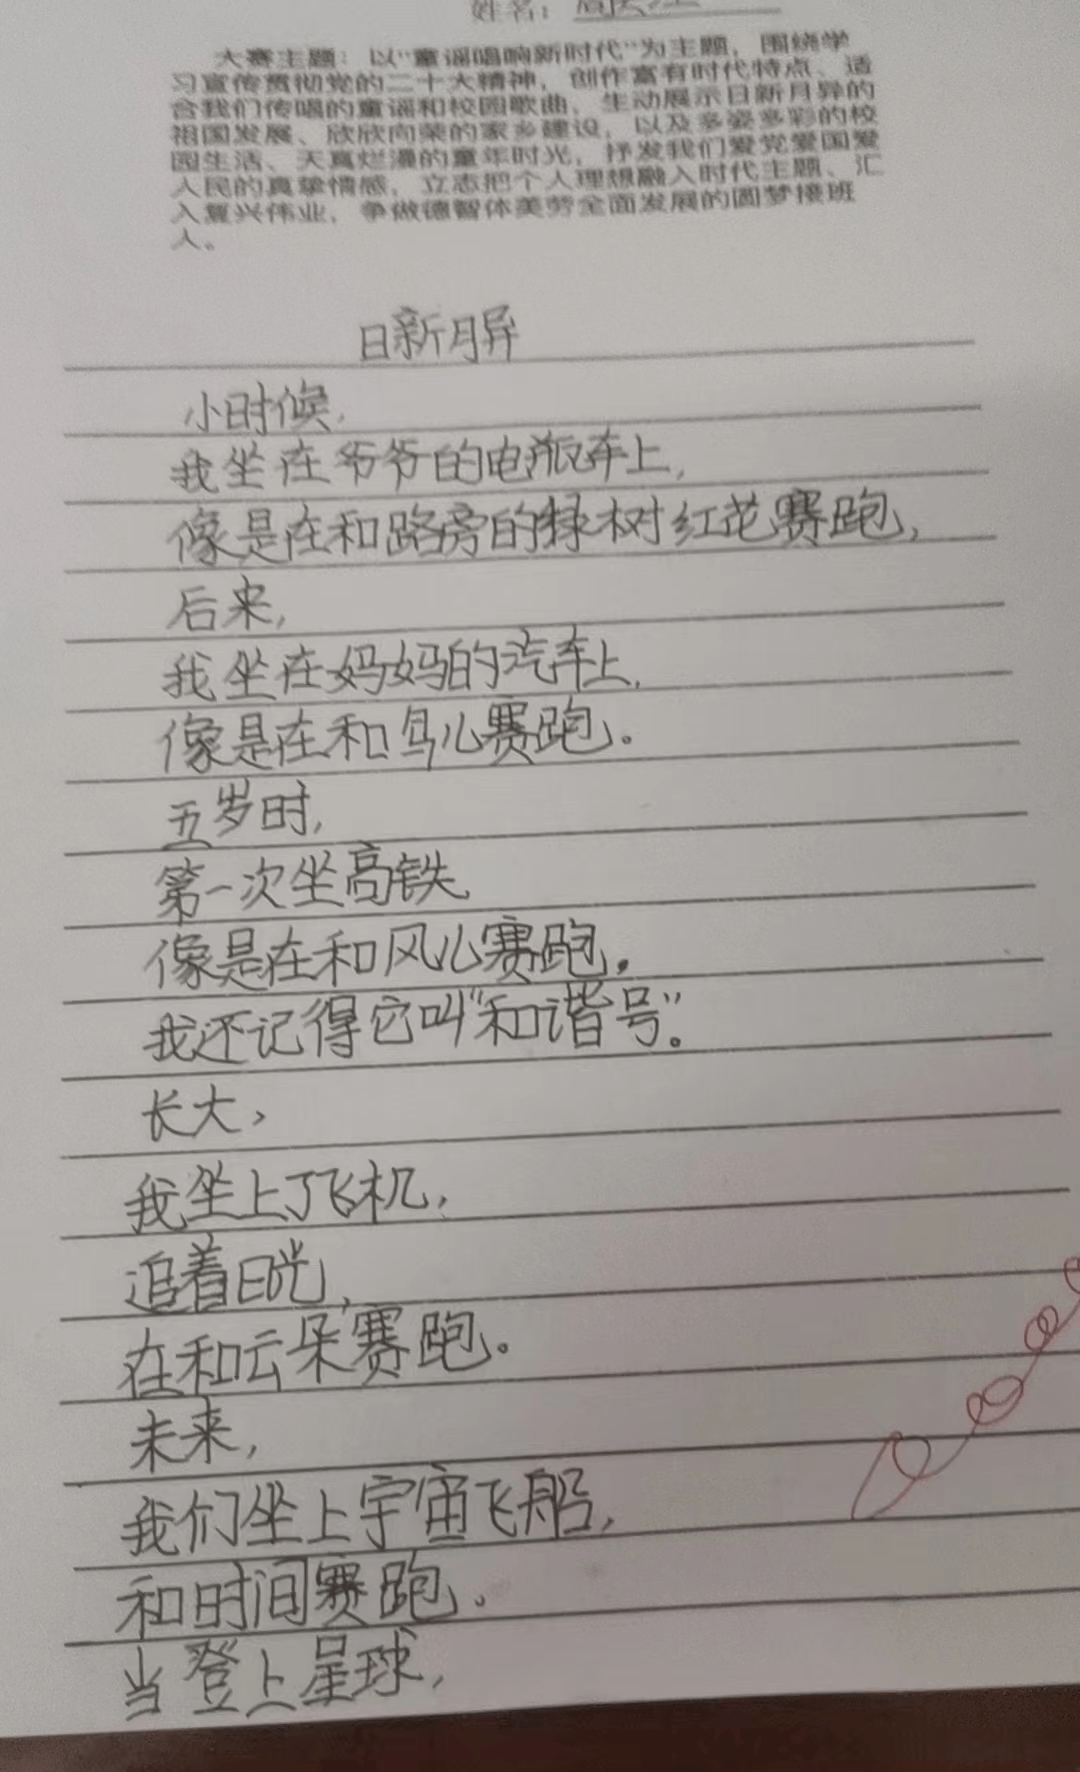 姓名：
大赛主题：以“童谣唱响新时代”为主题，围绕学
习宣传贯彻党的二十大精神，创作富有时代特点、适
合我们传唱的童谣和校园歌曲，生动展示日新月异的
祖国发展、欣欣向荣的家乡建设，以及多姿多彩的校
园生活、天真烂漫的童年时光，抒发我们爱党爱国爱
人民的真挚情感，立志把个人理想融入时代主题、汇
入复兴伟业，争做德智体美劳全面发展的圆梦接班
人。
日新月异
小时候，
我坐在爷爷的电瓶车上，
像是在和路旁的绿树红花赛跑，
后来，
我坐在妈妈的汽车上，
像是在和鸟儿赛跑。
五岁时，
第一次坐高铁
像是在和风儿赛跑，
我还记得它叫“和谐号”。
长大，
我坐上了飞机，
追着日光，
在和云朵赛跑。
未来，
我们坐上宇宙飞船，
和时间赛跑。
当登上星球，